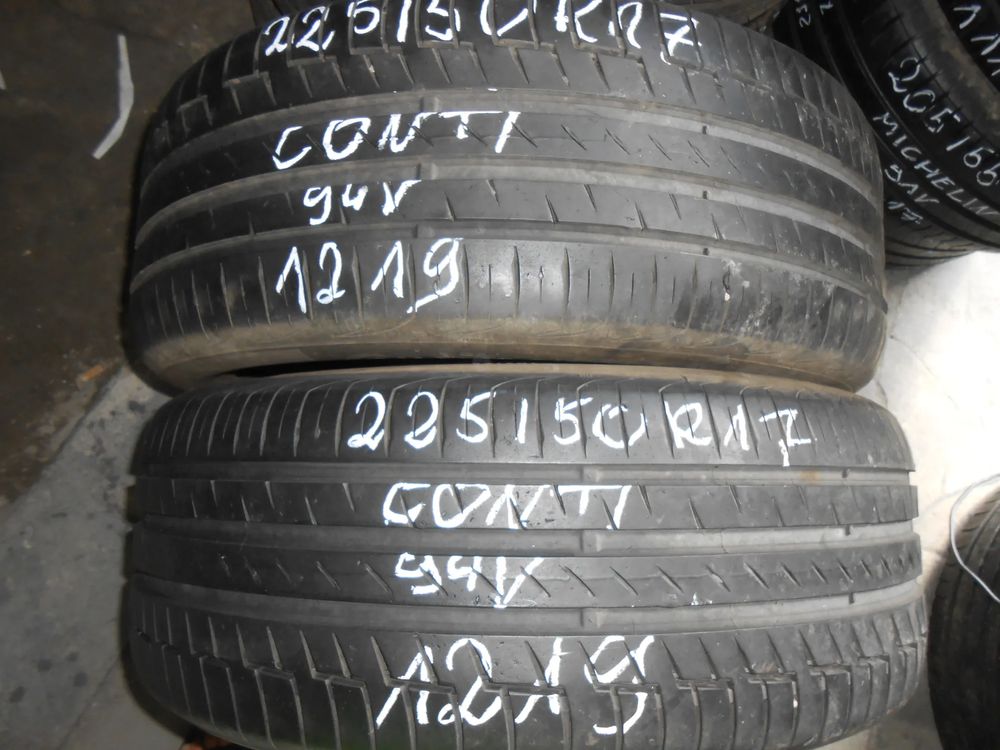 225/50R17
CONTI
94V
1219
225/50R17
CONTI
94V
1219
205/55
MICHELIN
91V
17